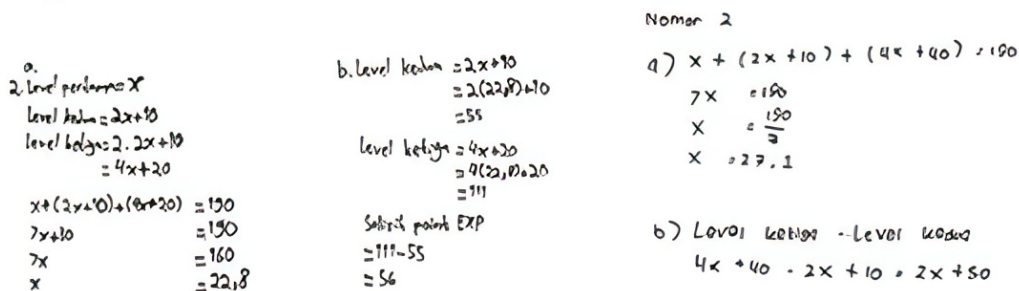 a.
2. Level pertama = x
Level kedua = 2x+10
Level ketiga = 2. 2x+10
= 4x+20
x+(2x+10)+(4x+20) = 190
7x+30 = 190
7x = 160
x = 22,8
b. Level kedua = 2x+10
= 2(22,8)+10
= 55
Level ketiga = 4x+20
= 4(22,8)+20
= 111
Selisih point EXP
= 111-55
= 56
Nomor 2
a) x + (2x +10) + (4x +40) = 190
7x = 190
x = 190/7
x = 27.1
b) Level ketiga - Level kedua
4x +40 - 2x +10 = 2x +50